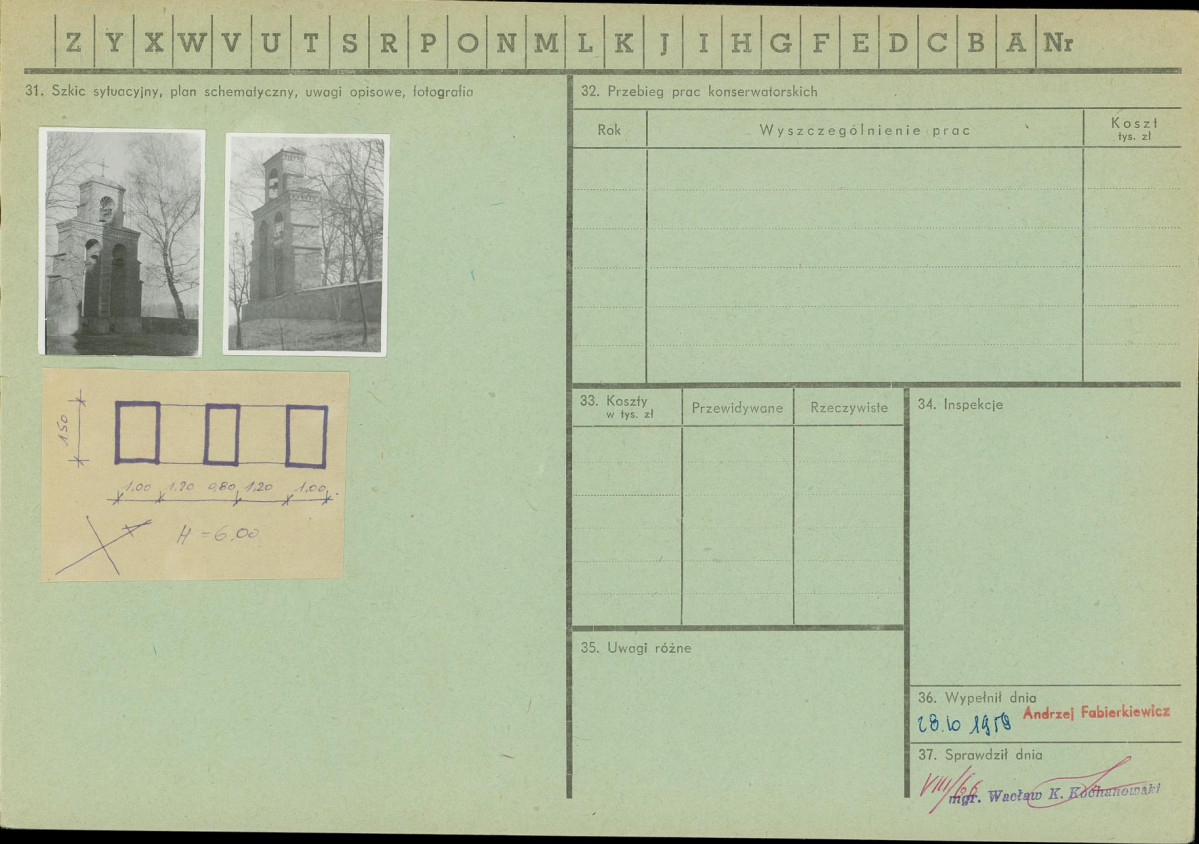 Z Y X W V U T S R P O N M L K J I H G F E D C B A Nr
31. Szkic sytuacyjny, plan schematyczny, uwagi opisowe, fotografia
150
1,00 1,20 0,80 1,20 1,00
H = 6,00
32. Przebieg prac konserwatorskich
Rok
Wyszczególnienie prac
Koszt
tys. zł
33. Koszty
w tys. zł
Przewidywane
Rzeczywiste
34. Inspekcje
35. Uwagi różne
36. Wypełnił dnia
28.10 1959 Andrzej Fabierkiewicz
37. Sprawdził dnia
VIII/66
mgr. Wacław K. Kochanowski